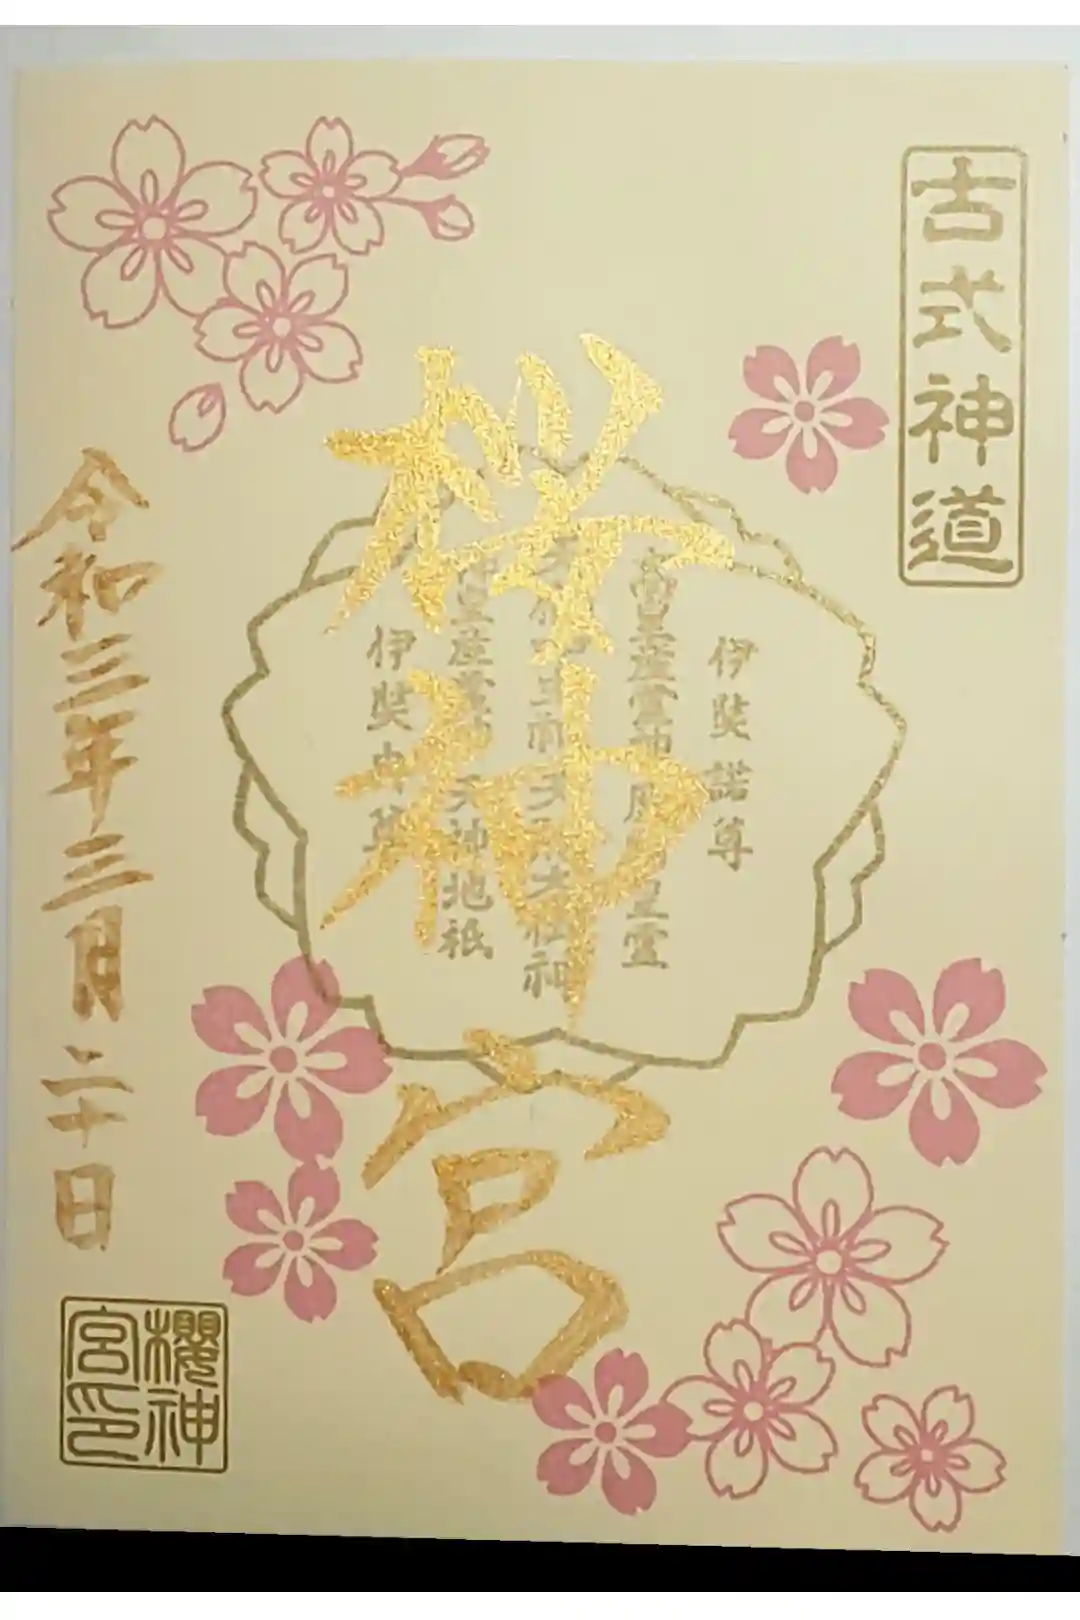 古式神道
伊奘諾尊
高皇産霊神 皇霊
天照大 神
神皇産霊神 天神地祇
伊奘冉尊
桜神宮
令和三年三月二十日
櫻神宮印